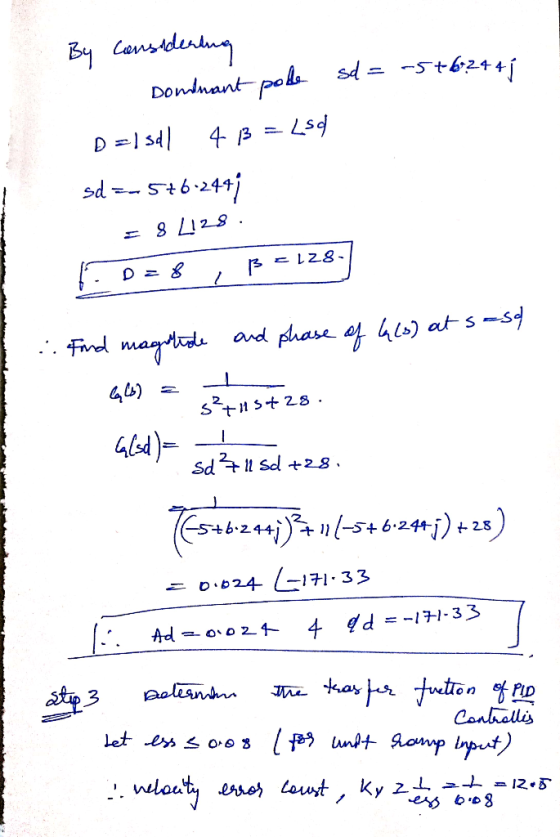 By Considering
Dominant pole sd = -5+6.244j
D = |sd| & β = ∠sd
sd = -5+6.244j
= 8 ∠128.
∴ D = 8 , β = 128.
∴ Find magnitude and phase of G(s) at s = sd
G(s) = 1 / s²+11s+28.
G(sd) = 1 / sd²+11 sd +28.
= 1 / ((-5+6.244j)²+11(-5+6.244j)+28)
= 0.024 ∠-171.33
∴ Ad = 0.024 & φd = -171.33
Step 3 Determine the transfer function of PID
Controllis
Let ess ≤ 0.08 (for unit ramp input)
∴ velocity error const, Kv ≥ 1/ess = 1/0.08 = 12.5